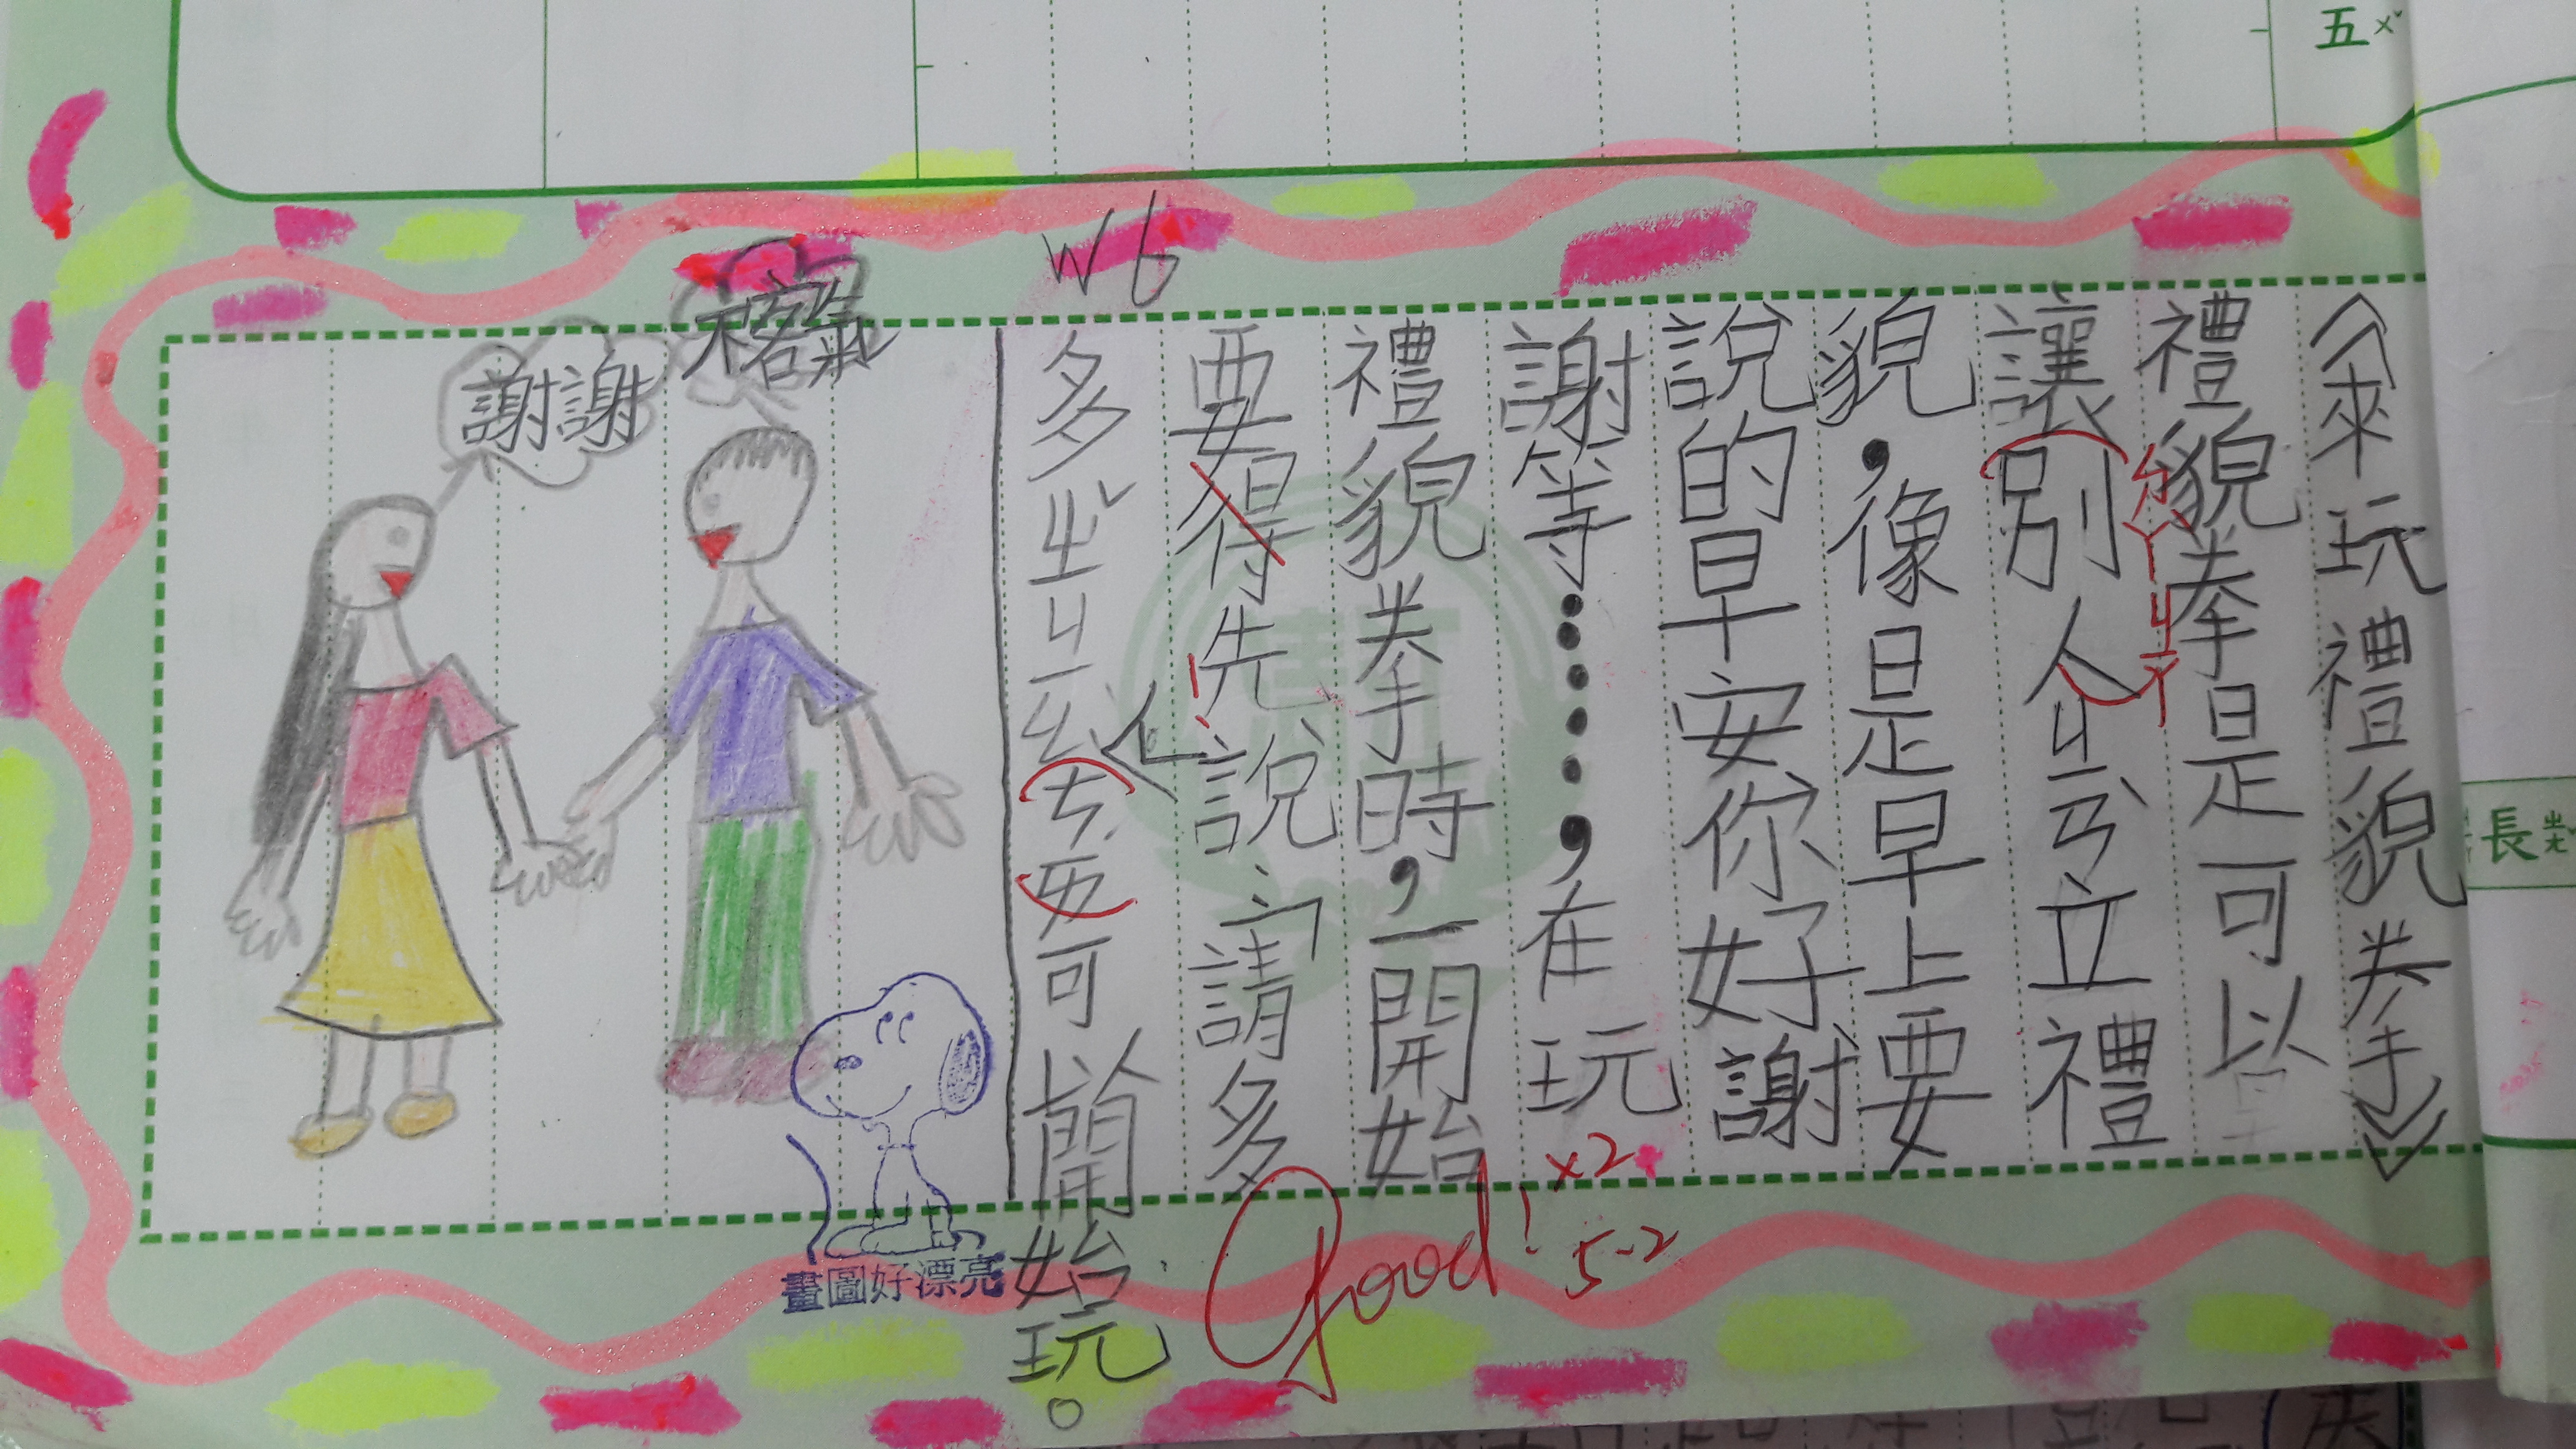 五ㄨˇ
長ㄓㄤ
W6
《來玩禮貌拳》
禮貌拳是可以
讓別人ㄐㄧㄢ立禮
貌，像是早上要
說的早安你好謝
謝等……，在玩
禮貌拳時，一開始
要得先說「請多
多ㄓˇㄐㄧㄠ」ㄘㄞˊ要可以開始玩。
大家
謝謝
不客氣
畫圖好漂亮
Good!
x2
5-2